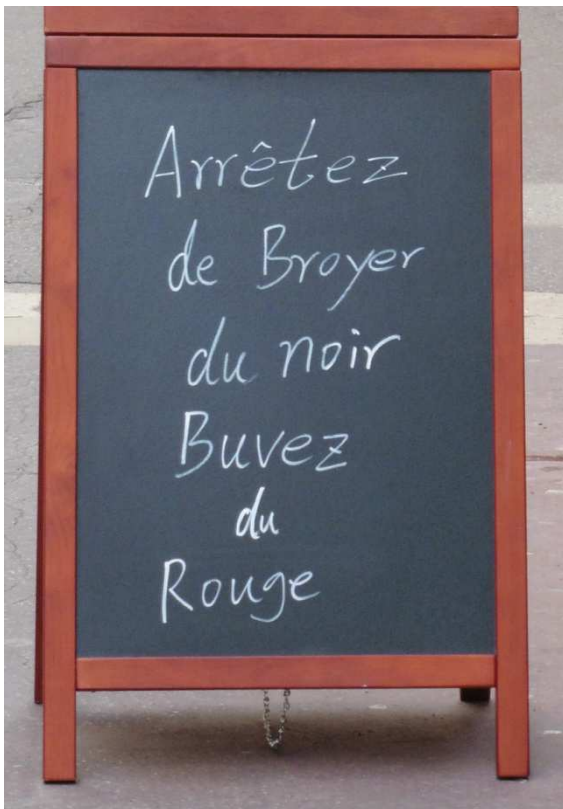 Arrêtez
de Broyer
du noir
Buvez
du
Rouge